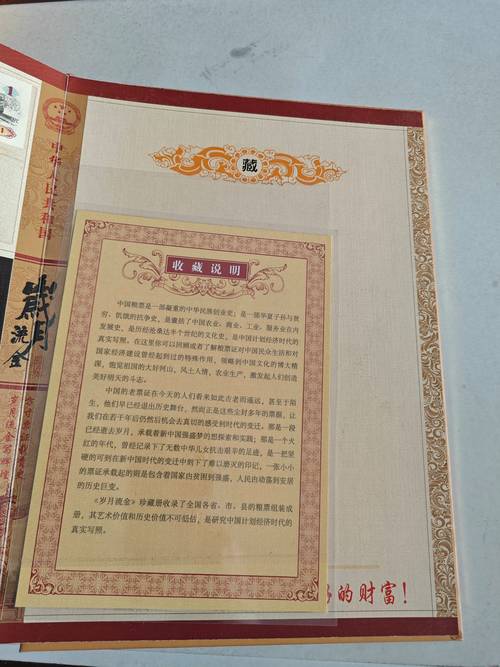 1
中华人民共和国
岁月
流金
藏
收藏说明
中国粮票是一部凝重的中华民族创业史；是一部华夏子孙与贫
穷、饥饿的抗争史，是囊括了中国农业、商业、工业、服务业在内
发展史，是历经沧桑达半个世纪的文化史，是中国计划经济时代的
真实写照。在这里你可以回顾或者了解粮票证对中国民众生活和对
国家经济建设曾经起到过的特殊作用，领略到中国文化的博大精
深，饱览祖国的大好河山，风土人情，农业生产，激发起人们创造
美好明天的斗志。
中国的老票证在今天的人们看来如此古老而遥远，甚至于陌
生，他们早已经退出历史舞台，然而正是这些尘封多年的票据，让
我们在若干年后仍然后机会去真切的感受到时代的变迁。那是一段
已经逝去岁月，承载着新中国强盛梦的想探索和实践；那是一个火
红的年代，曾经记录下了无数中华儿女抗击艰辛的足迹，是一把坚
硬的可到在新中国时代的变迁中刻下了难以磨灭的印记，一张小小
的票证承载起的则是包含着国家由贫困到强盛，人民由动荡到安居
的历史巨变。
《岁月流金》珍藏册收录了全国各省、市、县的粮票组装成
册，其艺术价值和历史价值不可低估，是研究中国计划经济时代的
真实写照。
的财富！